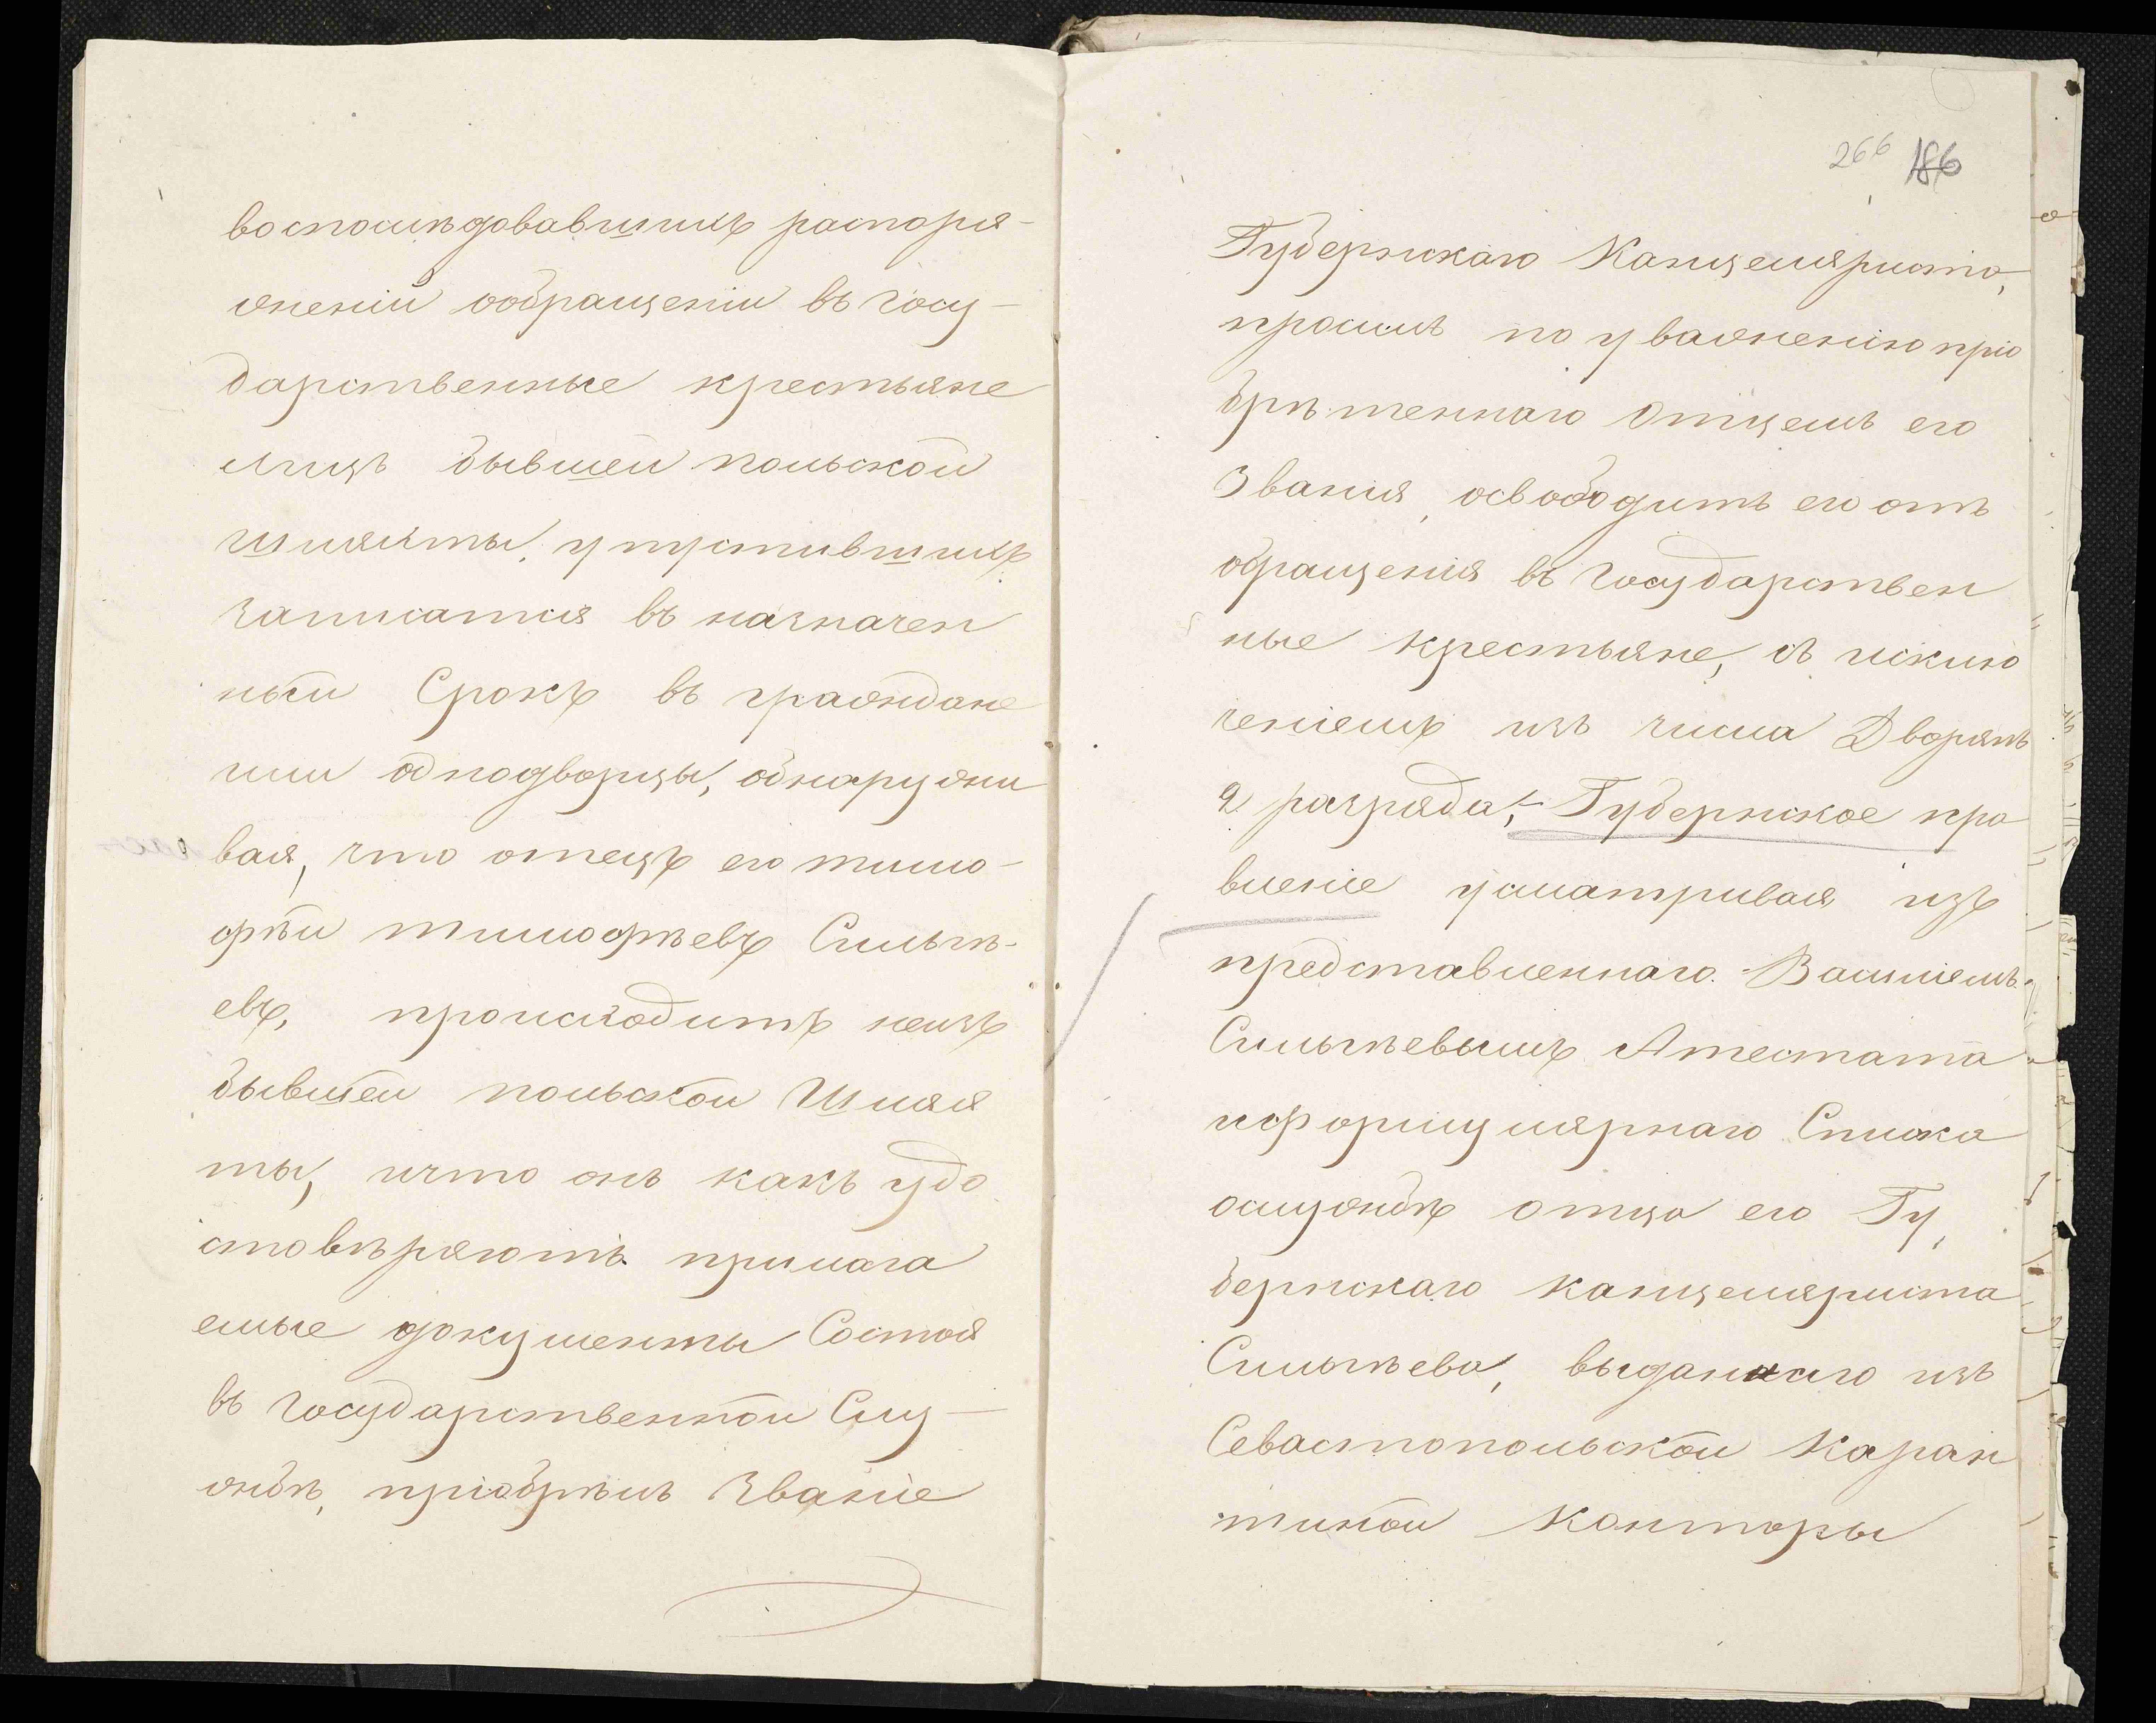 воспослѣдовавшихъ распоря-
женій ообращеніи въ Госу-
дарственные крестьяне
лицъ бывшей польской
шляхты, упустившихъ
записатся въ назначен
ный Срокъ въ граждане
или однодворцы, обнаружи
вая, что отецъ его тимо-
фѣй тимофѣевъ Смыгѣ-
евъ, происходитъ неизъ
бывшей польской Шлях
ты, ичто онъ какъ удо
стовѣряютъ прилага
емые документы Состоя
въ Государственной Слу-
жбѣ, пріобрѣлъ Званіе
266 186
Губернскаго Канцеляриста,
просилъ по уваженію пріо
брѣтеннаго Отцемъ его
Званія, освободить его отъ
обращенія въ Государствен
ные крестьяне, съ исклю
ченіемъ изъ числа Дворянъ
2 разряда;- Губернское пра
вленіе усматривая изъ
представленнаго Василіемъ
Смыгѣевымъ Атестата
иформулярнаго Списка
ослужбѣ отца его Гу
бернскаго канцеляриста
Смыгѣева, выданнаго изъ
Севастопольской Каран
тиной Конторы